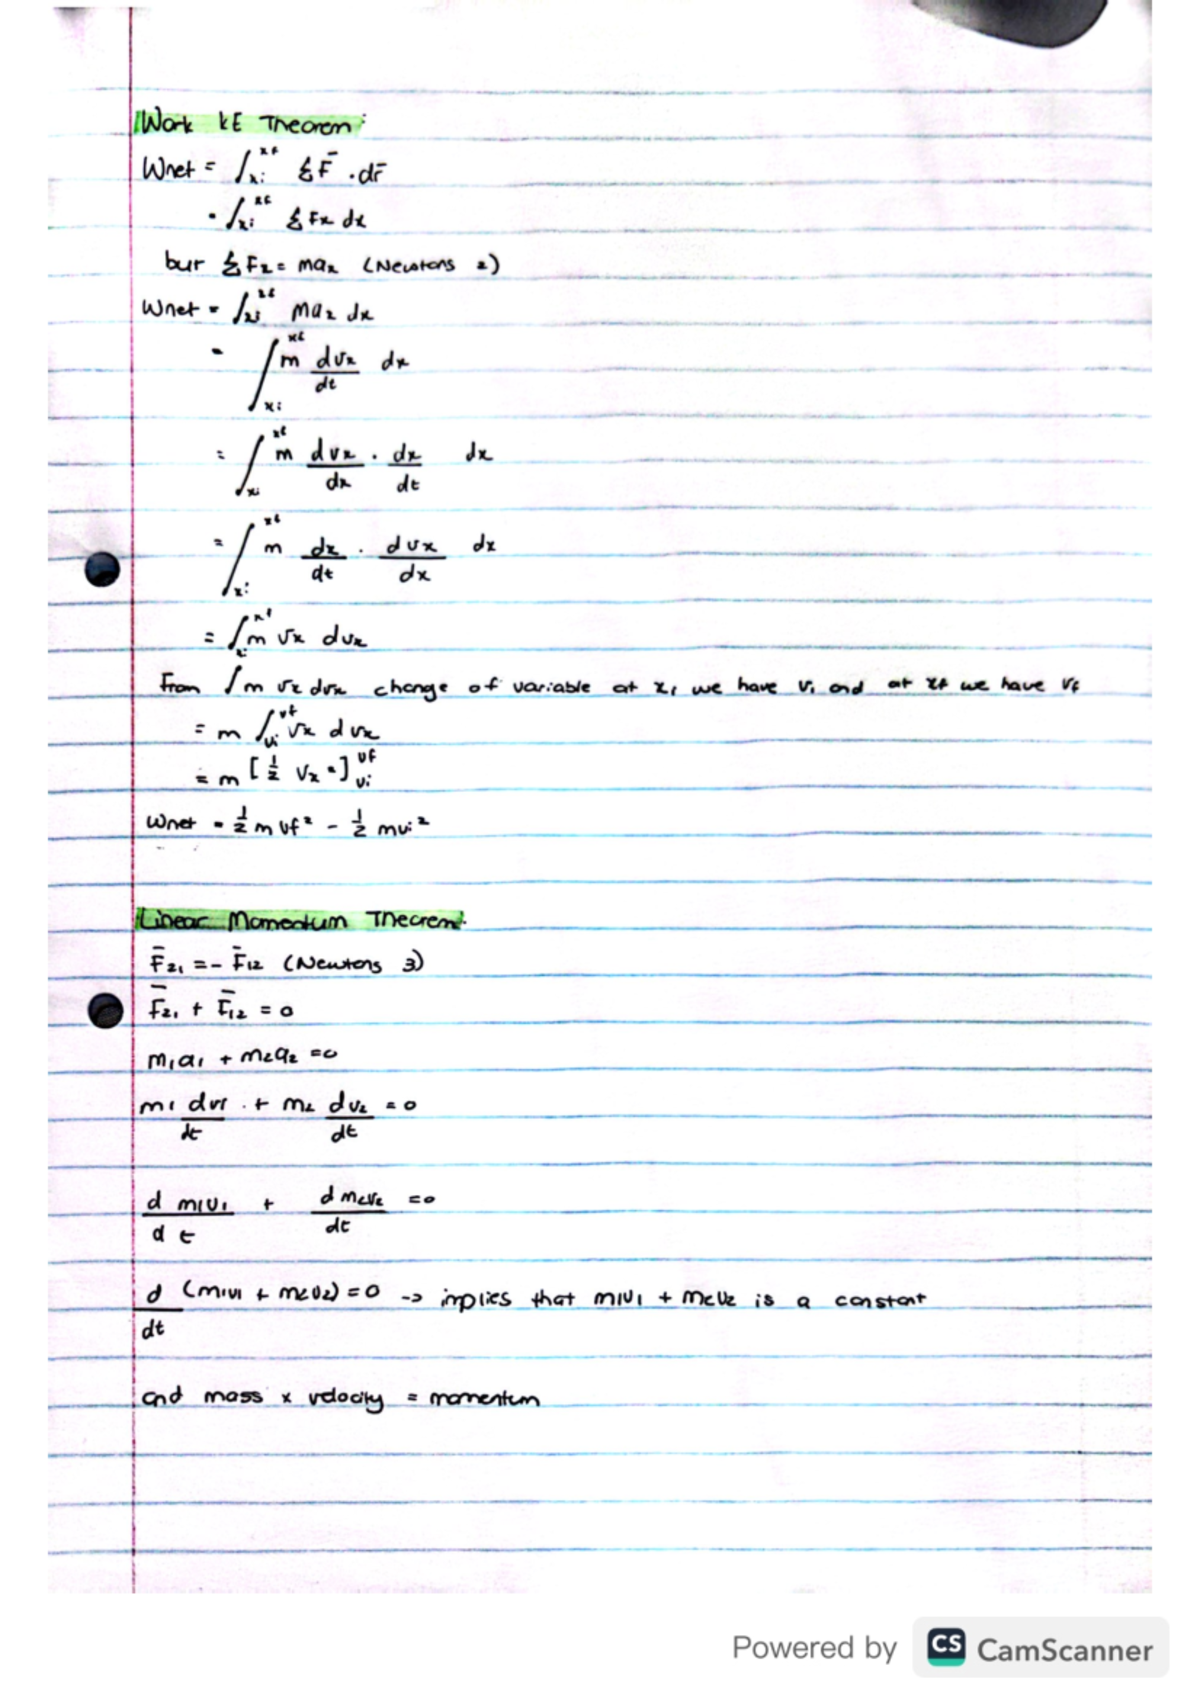 Work KE Theorem:
Wnet = ∫xi^xf ΣF̄ . dr̄
= ∫xi^xf ΣFx dx
but ΣFx = max (Newtons 2)
Wnet = ∫xi^xf max dx
= ∫xi^xf m dvx/dt dx
= ∫xi^xf m dvx/dx . dx/dt dx
= ∫xi^xf m dx/dt . dvx/dx dx
= ∫xi^xf m vx dvx
From ∫m vx dvx change of variable at xi we have vi and at xf we have vf
= m ∫vi^vf vx dvx
= m [½ vx²]vi^vf
Wnet = ½ m vf² - ½ mvi²
Linear Momentum Theorem:
F̄21 = - F̄12 (Newtons 3)
F̄21 + F̄12 = 0
m1a1 + m2a2 = 0
m1 dv1/dt + m2 dv2/dt = 0
d m1v1/dt + d m2v2/dt = 0
d/dt (m1v1 + m2v2) = 0 -> implies that m1v1 + m2v2 is a constant
and mass x velocity = momentum
Powered by CS CamScanner